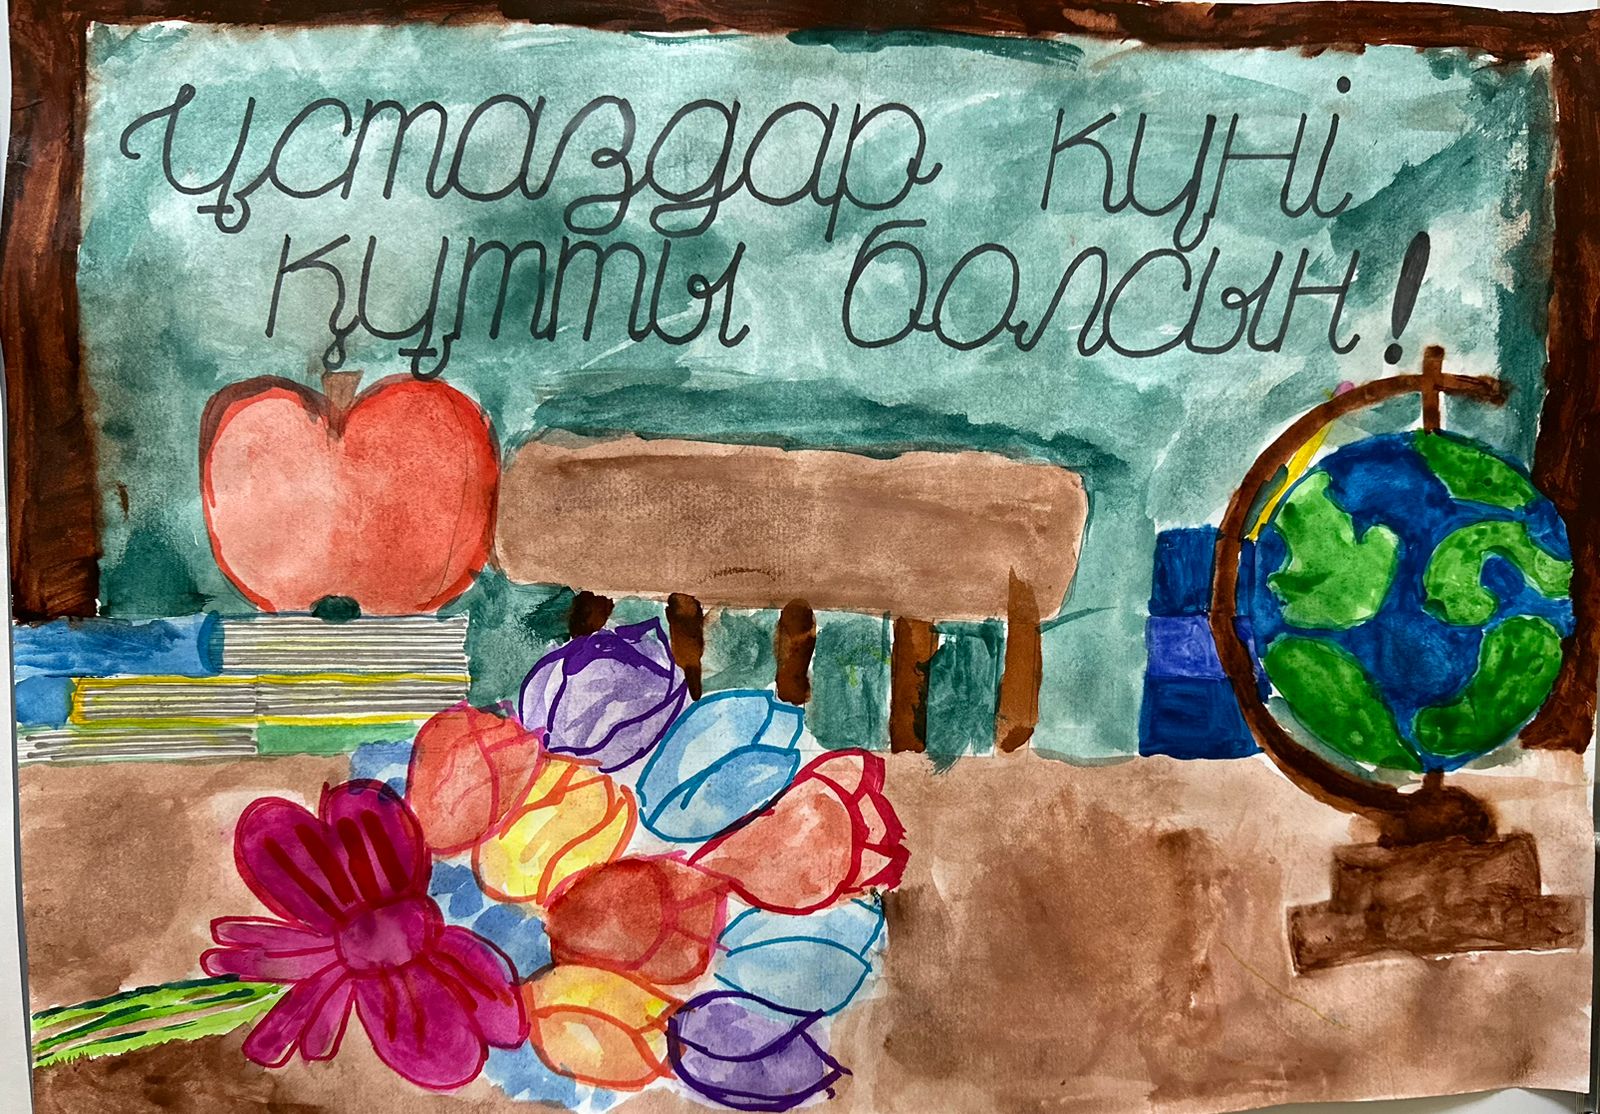 Ұстаздар күні
құтты болсын!